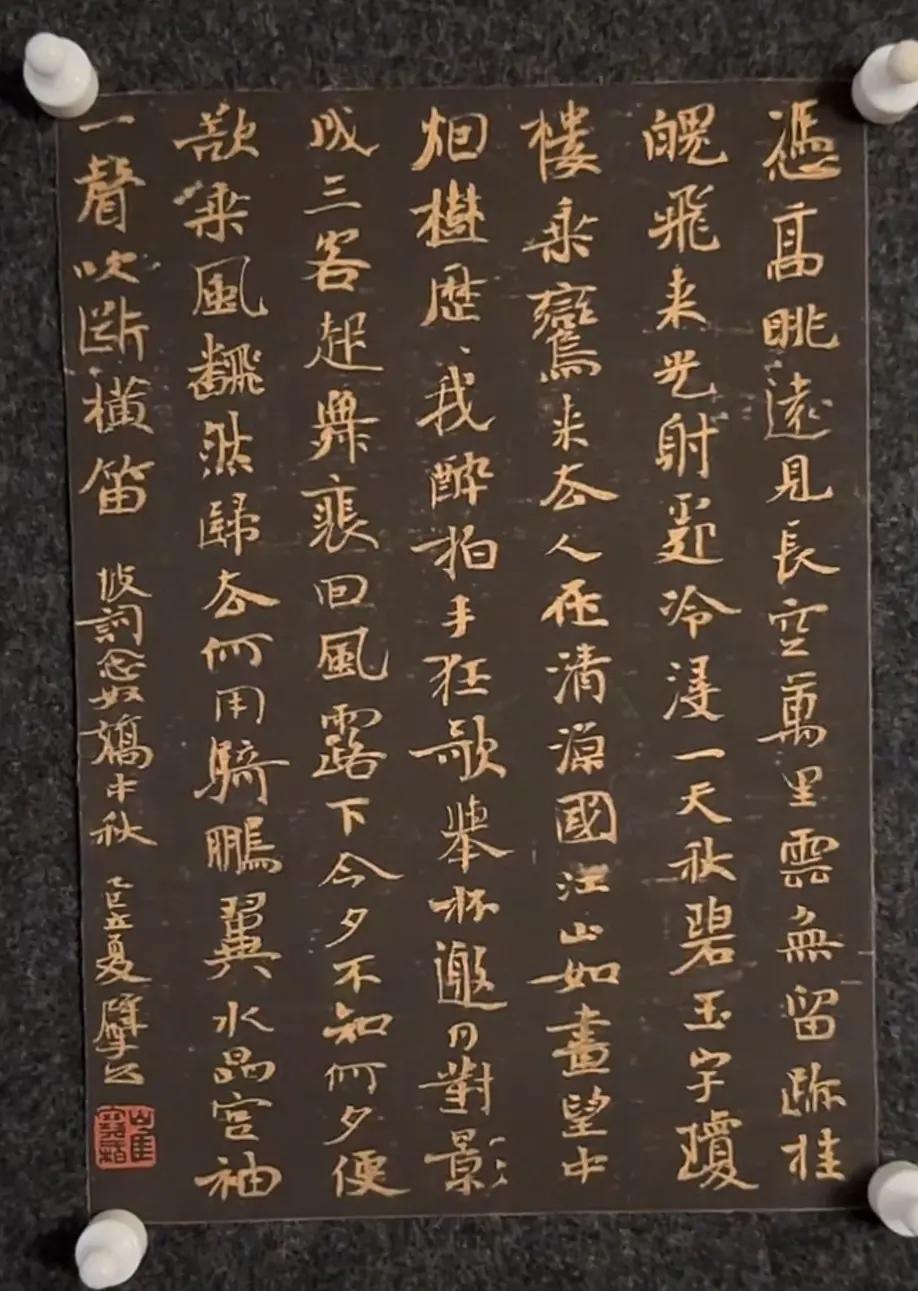 憑高眺遠見長空萬里雲無留跡桂
魄飛来光射處冷浸一天秋碧玉宇瓊
樓乘鸞来去人在清涼國江山如畫望中
烟樹歷〻我醉拍手狂歌舉杯邀月對影
成三客起舞裵回風露下今夕不知何夕便
欲乘風翻然歸去何用騎鵬翼水晶宮袖
一聲吹斷橫笛 坡詞念奴嬌中秋 夏